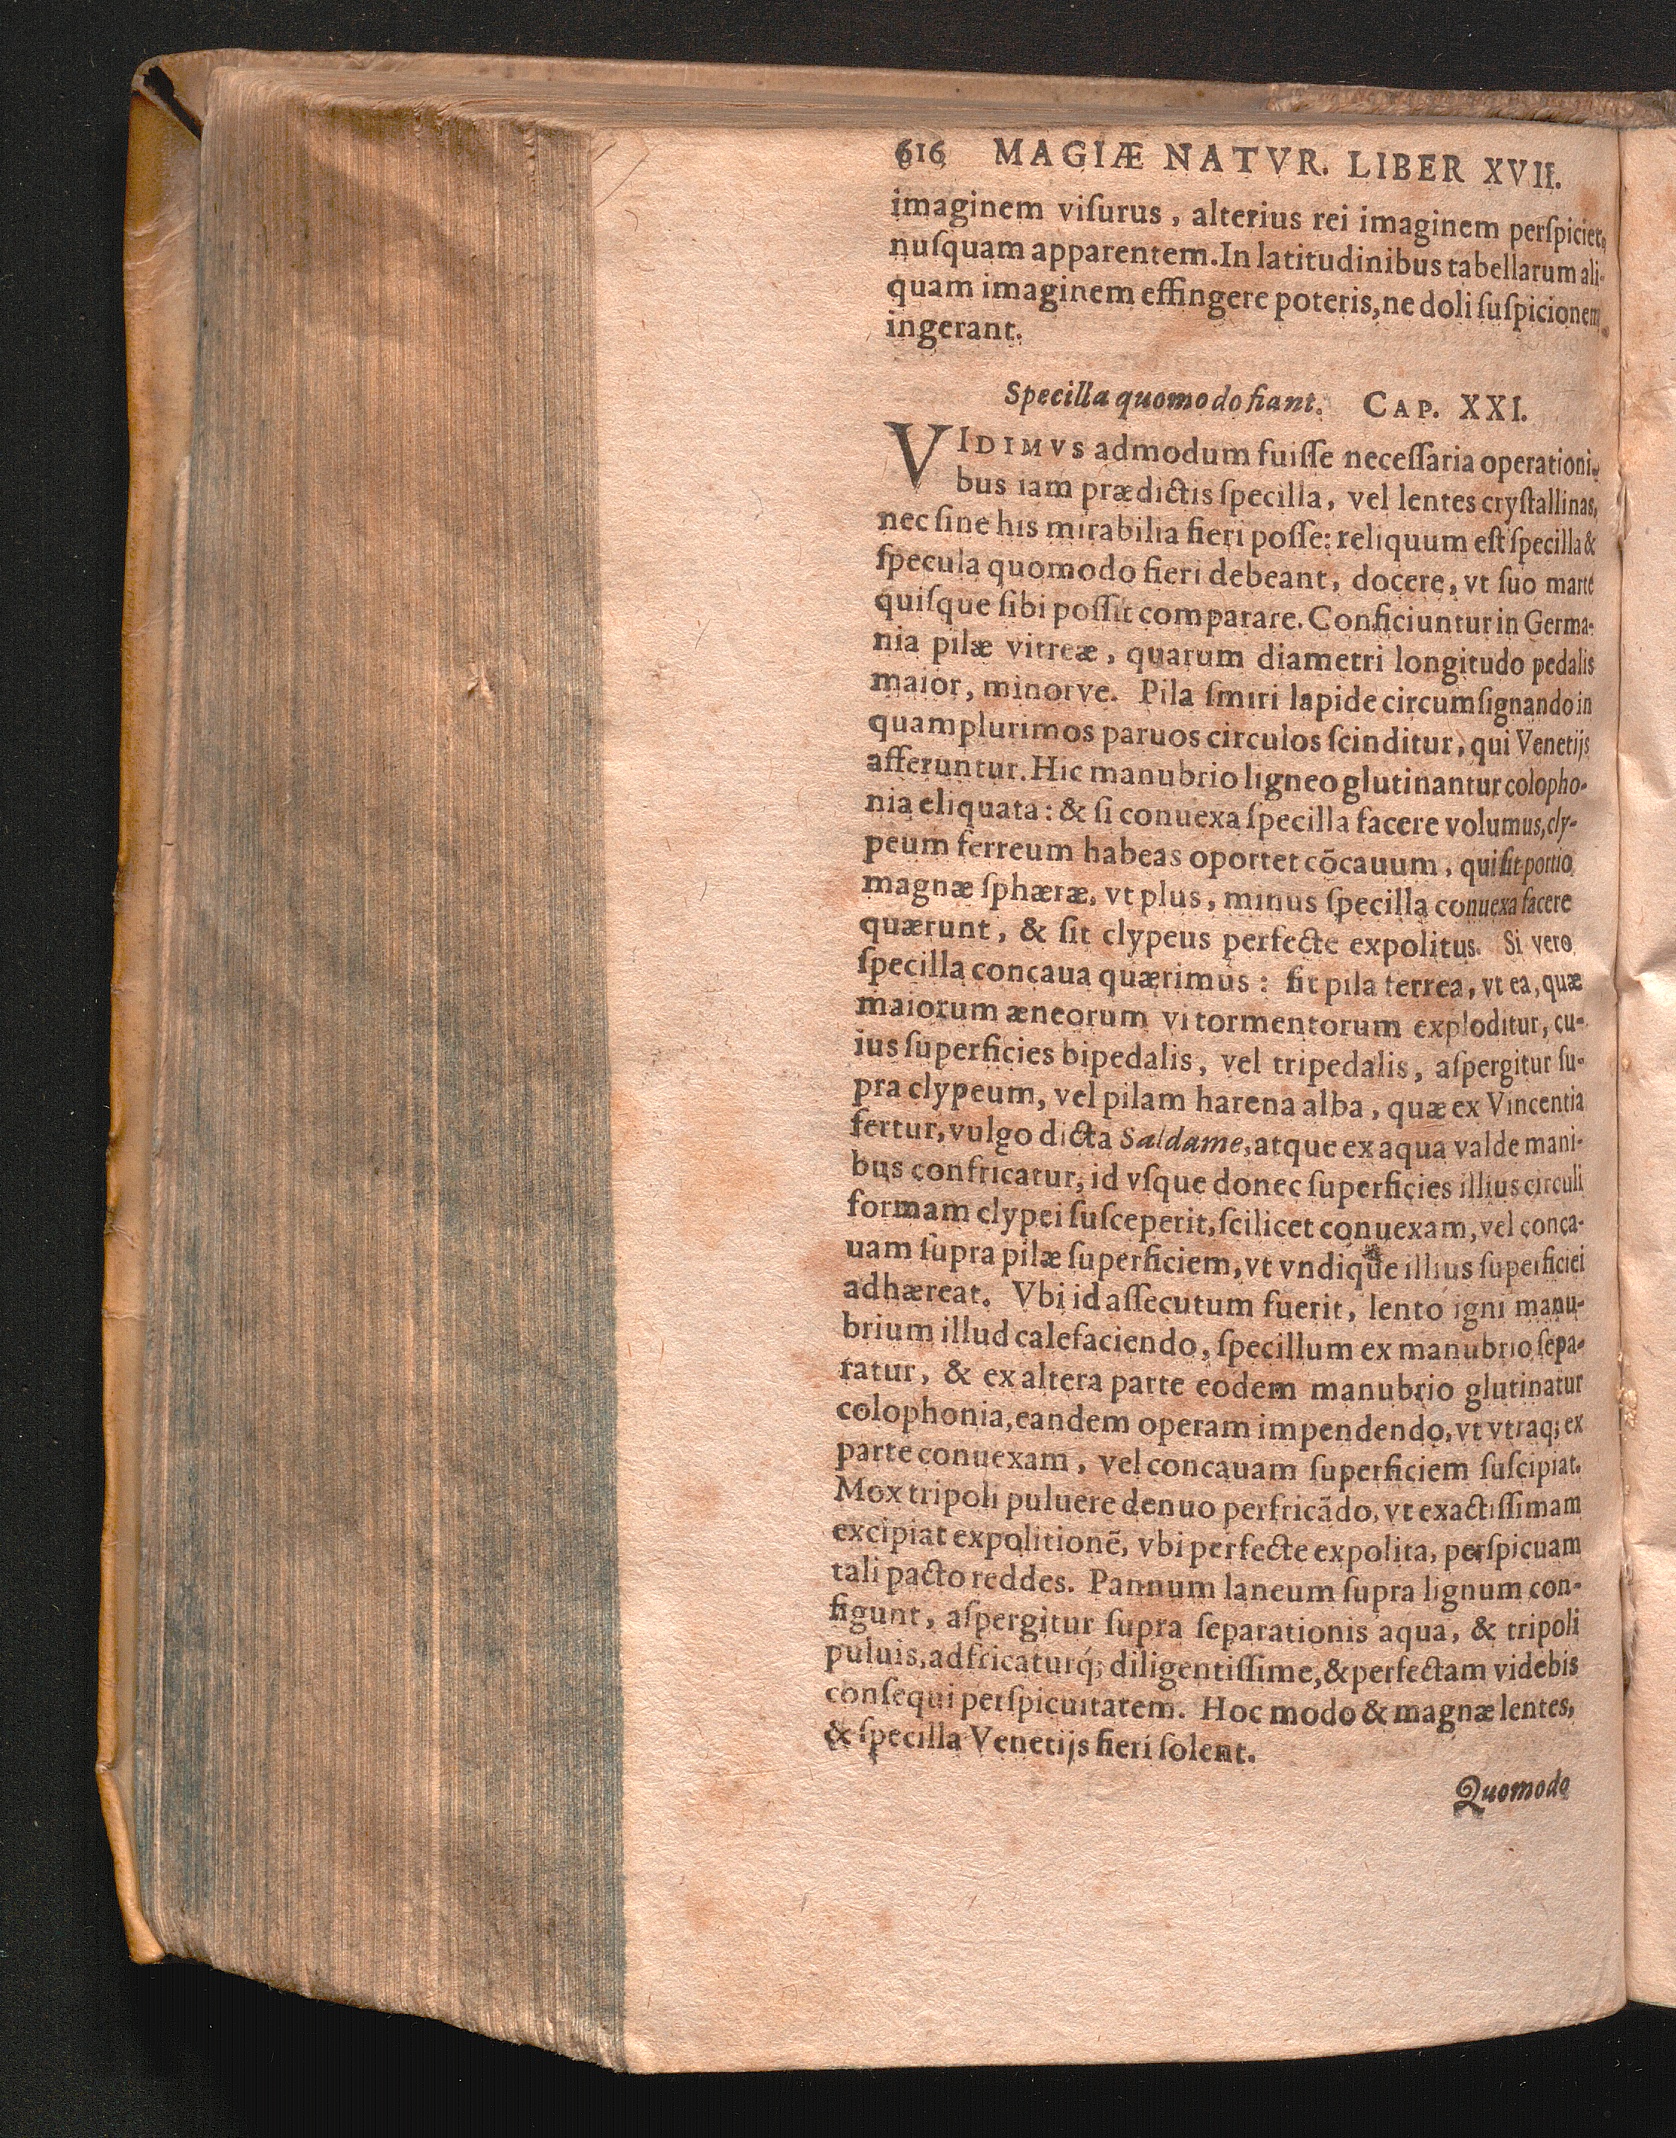 616 MAGIÆ NATVR. LIBER XVII.
imaginem viſurus, alterius rei imaginem perſpiciet,
nuſquam apparentem. In latitudinibus tabellarum ali-
quam imaginem effingere poteris, ne doli ſuſpicionem
ingerant.
Specilla quomodo fiant. CAP. XXI.
VIDIMVS admodum fuiſſe neceſſaria operationi-
bus iam prædictis ſpecilla, vel lentes cryſtallinas,
nec ſine his mirabilia fieri poſſe: reliquum eſt ſpecilla &
ſpecula quomodo fieri debeant, docere, vt ſuo marte
quiſque ſibi poſſit comparare. Conficiuntur in Germa-
nia pilæ vitreæ, quarum diametri longitudo pedalis
maior, minorve. Pila ſmiri lapide circumſignando in
quamplurimos paruos circulos ſcinditur, qui Venetijs
afferuntur. Hic manubrio ligneo glutinantur colopho-
nia eliquata: & ſi conuexa ſpecilla facere volumus, cly-
peum ferreum habeas oportet cõcauum, qui ſit portio
magnæ ſphæræ, vt plus, minus ſpecilla conuexa facere
quærunt, & ſit clypeus perfecte expolitus. Si vero
ſpecilla concaua quærimus: fit pila terrea, vt ea, quæ
maiorum æneorum vi tormentorum exploditur, cu-
ius ſuperficies bipedalis, vel tripedalis, aſpergitur ſu-
pra clypeum, vel pilam harena alba, quæ ex Vincentia
fertur, vulgo dicta Saldame, atque ex aqua valde mani-
bus confricatur, id vſque donec ſuperficies illius circuli
formam clypei ſuſceperit, ſcilicet conuexam, vel conca-
uam ſupra pilæ ſuperficiem, vt vndique illius ſuperficiei
adhæreat. Vbi id aſſecutum fuerit, lento igni manu-
brium illud calefaciendo, ſpecillum ex manubrio ſepa-
ratur, & ex altera parte eodem manubrio glutinatur
colophonia, eandem operam impendendo, vt vtraq; ex
parte conuexam, vel concauam ſuperficiem ſuſcipiat.
Mox tripoli puluere denuo perfricãdo, vt exactiſſimam
excipiat expolitionẽ, vbi perfecte expolita, perſpicuam
tali pacto reddes. Pannum laneum ſupra lignum con-
figunt, aſpergitur ſupra ſeparationis aqua, & tripoli
puluis, adfricaturq́; diligentiſſime, & perfectam videbis
conſequi perſpicuitatem. Hoc modo & magnæ lentes,
& ſpecilla Venetijs fieri ſolent.
Quomodo